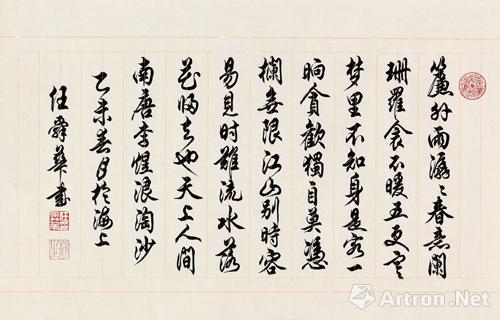 簾外雨潺々春意闌
珊羅衾不暖五更寒
梦里不知身是客一
晌貪歡獨自莫憑
欄無限江山別時容
易見時難流水落
花歸去也天上人間
南唐李煜浪淘沙
乙未春月於海上
任舜華書
Artron.Net